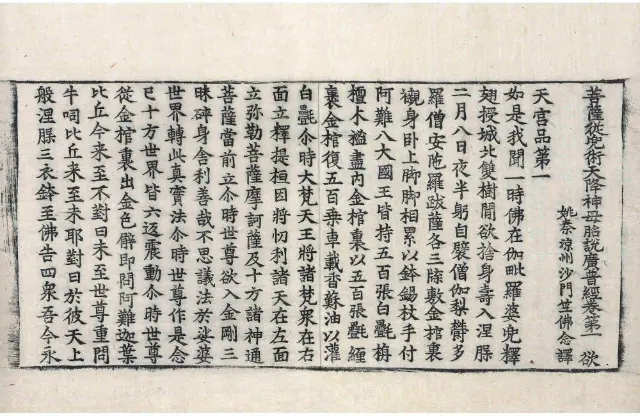 菩薩從兜術天降神母胎說廣普經卷第一 欲
姚秦涼州沙門竺佛念譯
天宮品第一
如是我聞一時佛在伽毗羅婆兜釋
翅授城北雙樹間欲捨身壽入涅槃
二月八日夜半躬自襞僧伽梨欝多
羅僧安陁羅跋薩各三條敷金棺裏
襯身卧上脚脚相累以鉢錫杖手付
阿難八大國王皆持五百張白㲲栴
檀木榓盡内金棺裏以五百張㲲纏
裹金棺復五百乗車載香蘇油以灌
白㲲尒時大梵天王將諸梵衆在右
面立釋提桓因將忉利諸天在左面
立弥勒菩薩摩訶薩及十方諸神通
菩薩當前立尒時世尊欲入金剛三
昧碎身舍利善哉不思議法於娑婆
世界轉此真寶法尒時世尊作是念
已十方世界皆六返震動尒時世尊
從金棺裏出金色臂即問阿難迦葉
比丘今来至不對曰未至世尊重問
牛呞比丘来至未耶對曰於彼天上
般涅槃三衣鉢至佛告四衆吾今永